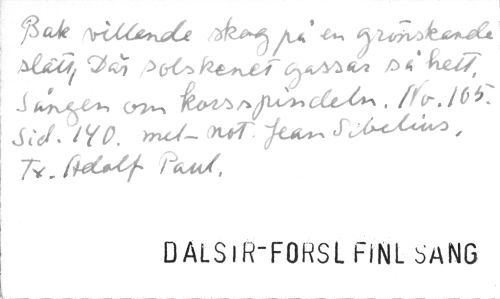 Bak villande skog på en grönskande
slätt, Där solskenet gassar så hett.
Sången om korsspindeln. No. 105.
Sid. 140. met not. Jean Sibelius.
Tx. Adolf Paul.
DALSTR-FORSL FINL SANG